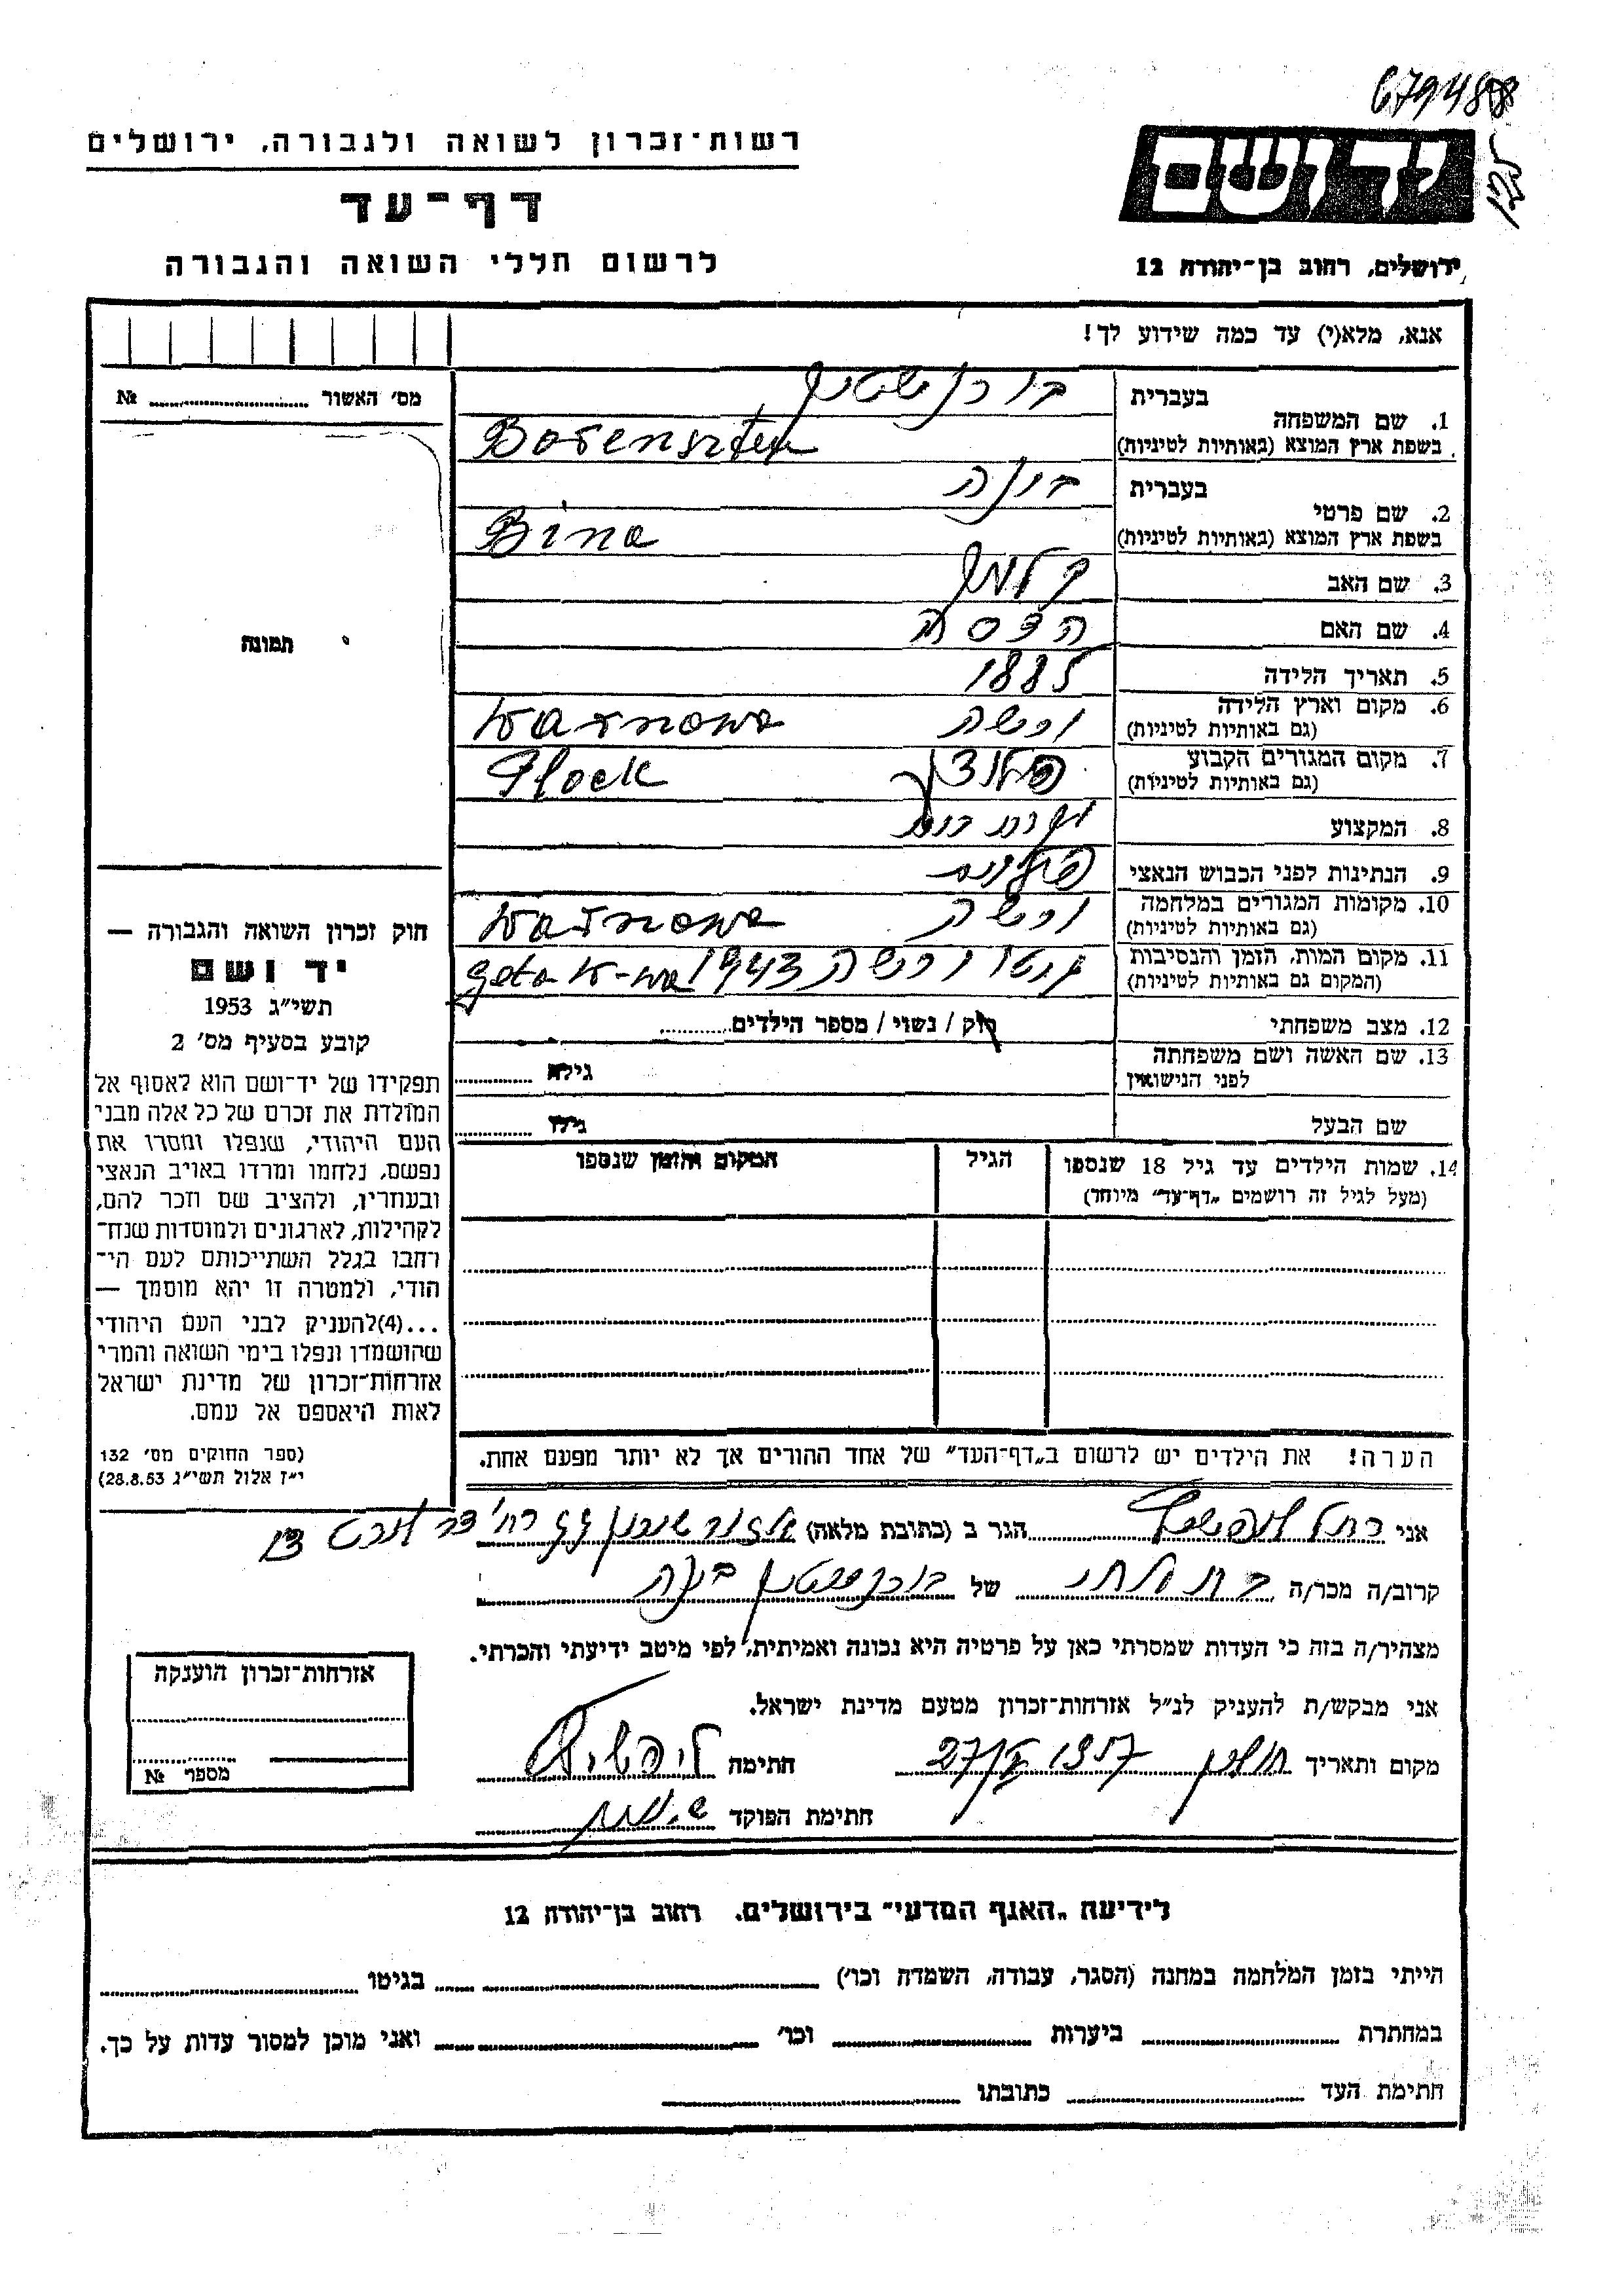 679488
רשות־זכרון לשואה ולגבורה, ירושלים
דף־עד
לרשום חללי השואה והגבורה
ידושם
ירושלים, רחוב בן־יהודה 12
אנא, מלא(י) עד כמה שידוע לך!
מס׳ האשור № 
תמונה
חוק זכרון השואה והגבורה —
יד ושם
תשי״ג 1953
קובע בסעיף מס׳ 2
תפקידו של יד־ושם הוא לאסוף אל
המולדת את זכרם של כל אלה מבני
העם היהודי, שנפלו ומסרו את
נפשם, נלחמו ומרדו באויב הנאצי
ובעוזריו, ולהציב שם וזכר להם,
לקהילות, לארגונים ולמוסדות שנח־
רחבו בגלל השתייכותם לעם הי־
הודי, ולמטרה זו יהא מוסמך —
...(4)להעניק לבני העם היהודי
שהושמדו ונפלו בימי השואה והמרי
אזרחות־זכרון של מדינת ישראל
לאות היאספם אל עמם.
(ספר החוקים מס׳ 132
י״ז אלול תשי״ג 28.8.53)
בעברית בורנשטיין
1. שם המשפחה
בשפת ארץ המוצא (באותיות לטיניות) Borensztein
בעברית בינה
2. שם פרטי
בשפת ארץ המוצא (באותיות לטיניות) Bina
3. שם האב קלמן
4. שם האם הדסה
5. תאריך הלידה 1885
6. מקום וארץ הלידה ורשה Warszawa
(גם באותיות לטיניות)
7. מקום המגורים הקבוע פלוצק Plock
(גם באותיות לטיניות)
8. המקצוע
9. הנתינות לפני הכבוש הנאצי פולנית
10. מקומות המגורים במלחמה ורשה Warszawa
(גם באותיות לטיניות)
11. מקום המות, הזמן והנסיבות גטו ורשה 1943 geto W-wa
(המקום גם באותיות לטיניות)
12. מצב משפחתי רוק / נשוי / מספר הילדים
13. שם האשה ושם משפחתה גילה
לפני הנישואין
שם הבעל גילו
14. שמות הילדים עד גיל 18 שנספו הגיל המקום והזמן שנספו
(מעל לגיל זה רושמים „דף־עד״ מיוחד)
הערה! את הילדים יש לרשום ב„דף־העד״ של אחד ההורים אך לא יותר מפעם אחת.
אני רחל ליפשיץ הגר ב (כתובת מלאה)
קרוב/ה מכר/ה של בורנשטיין בינה
מצהיר/ה בזה כי העדות שמסרתי כאן על פרטיה היא נכונה ואמיתית, לפי מיטב ידיעתי והכרתי.
אני מבקש/ת להעניק לנ״ל אזרחות־זכרון מטעם מדינת ישראל.
מקום ותאריך חולון 27 1957 חתימה ליפשיץ
חתימת הפוקד
אזרחות־זכרון הוענקה
מספר №
לידיעת „האגף המדעי״ בירושלים. רחוב בן־יהודה 12
הייתי בזמן המלחמה במחנה (הסגר, עבודה, השמדה וכו׳) בגיטו
במחתרת ביערות וכו׳ ואני מוכן למסור עדות על כך.
חתימת העד כתובתו